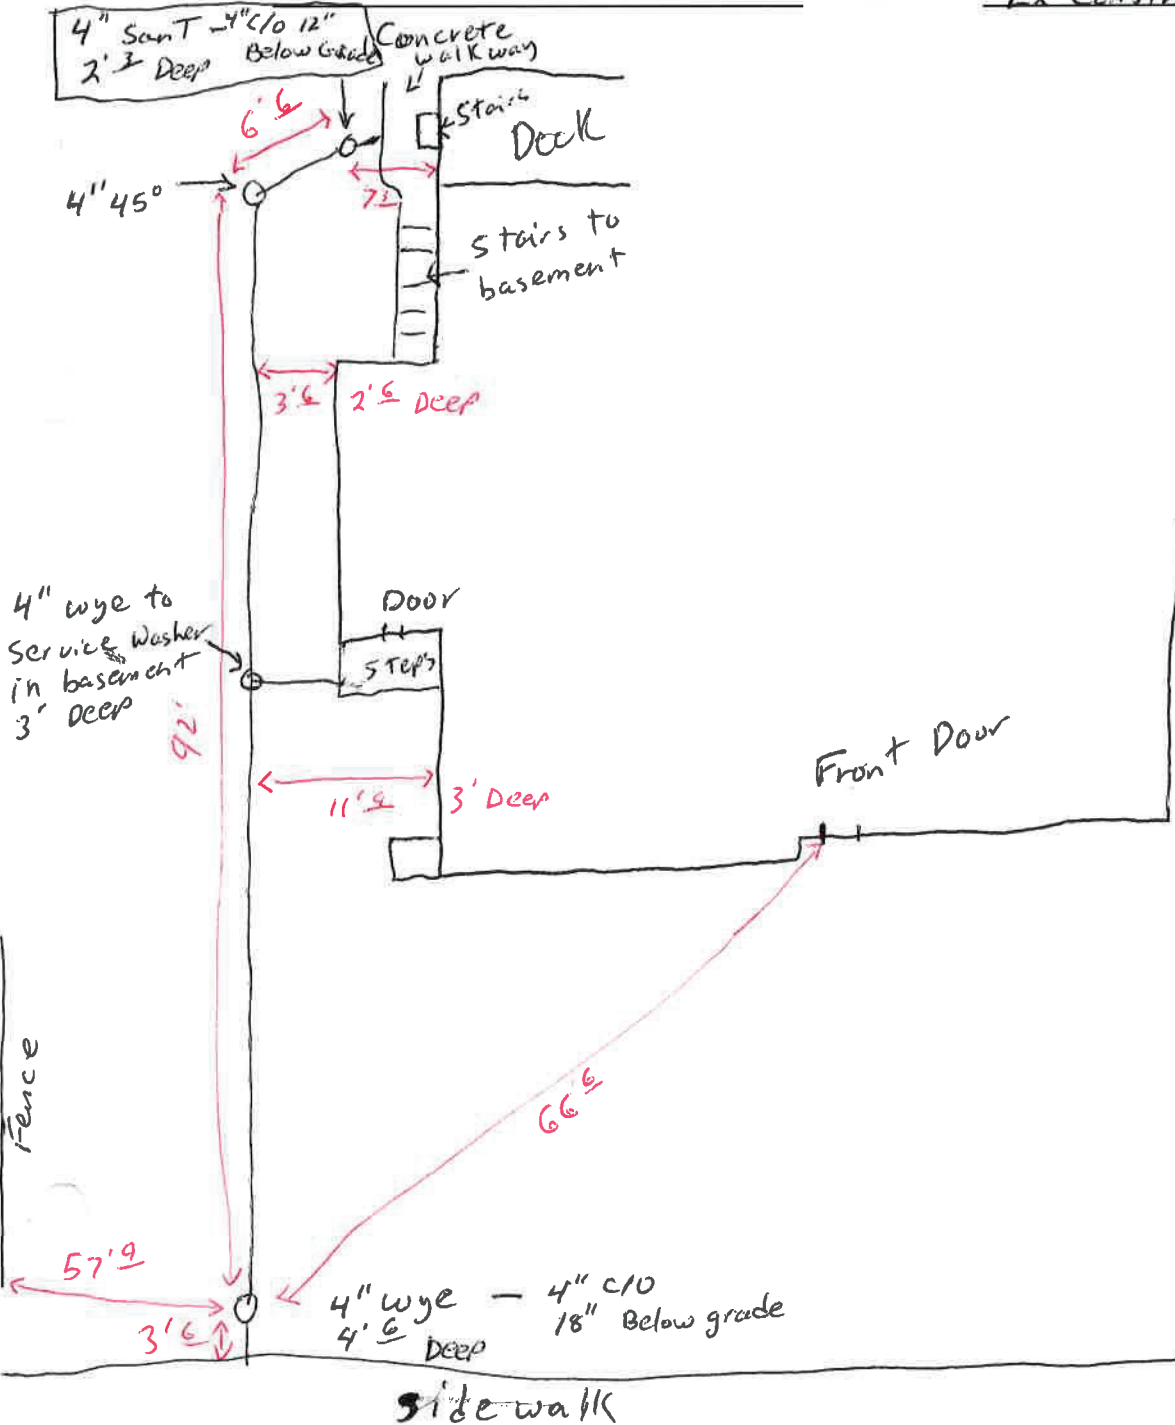 4" San T - 4" C/O 12"
2' 3 Deep Below Grade
Concrete
walkway
Stairs
Deck
6' 6
4" 45°
7 3
Stairs to
basement
3' 6
2' 6 Deep
4" wye to
Service Washer
in basement
3' Deep
Door
Steps
92'
11' 9
3' Deep
Front Door
Fence
66 6
57' 9
4" wye - 4" C/O
4' 6 Deep
18" Below grade
3' 6
sidewalk